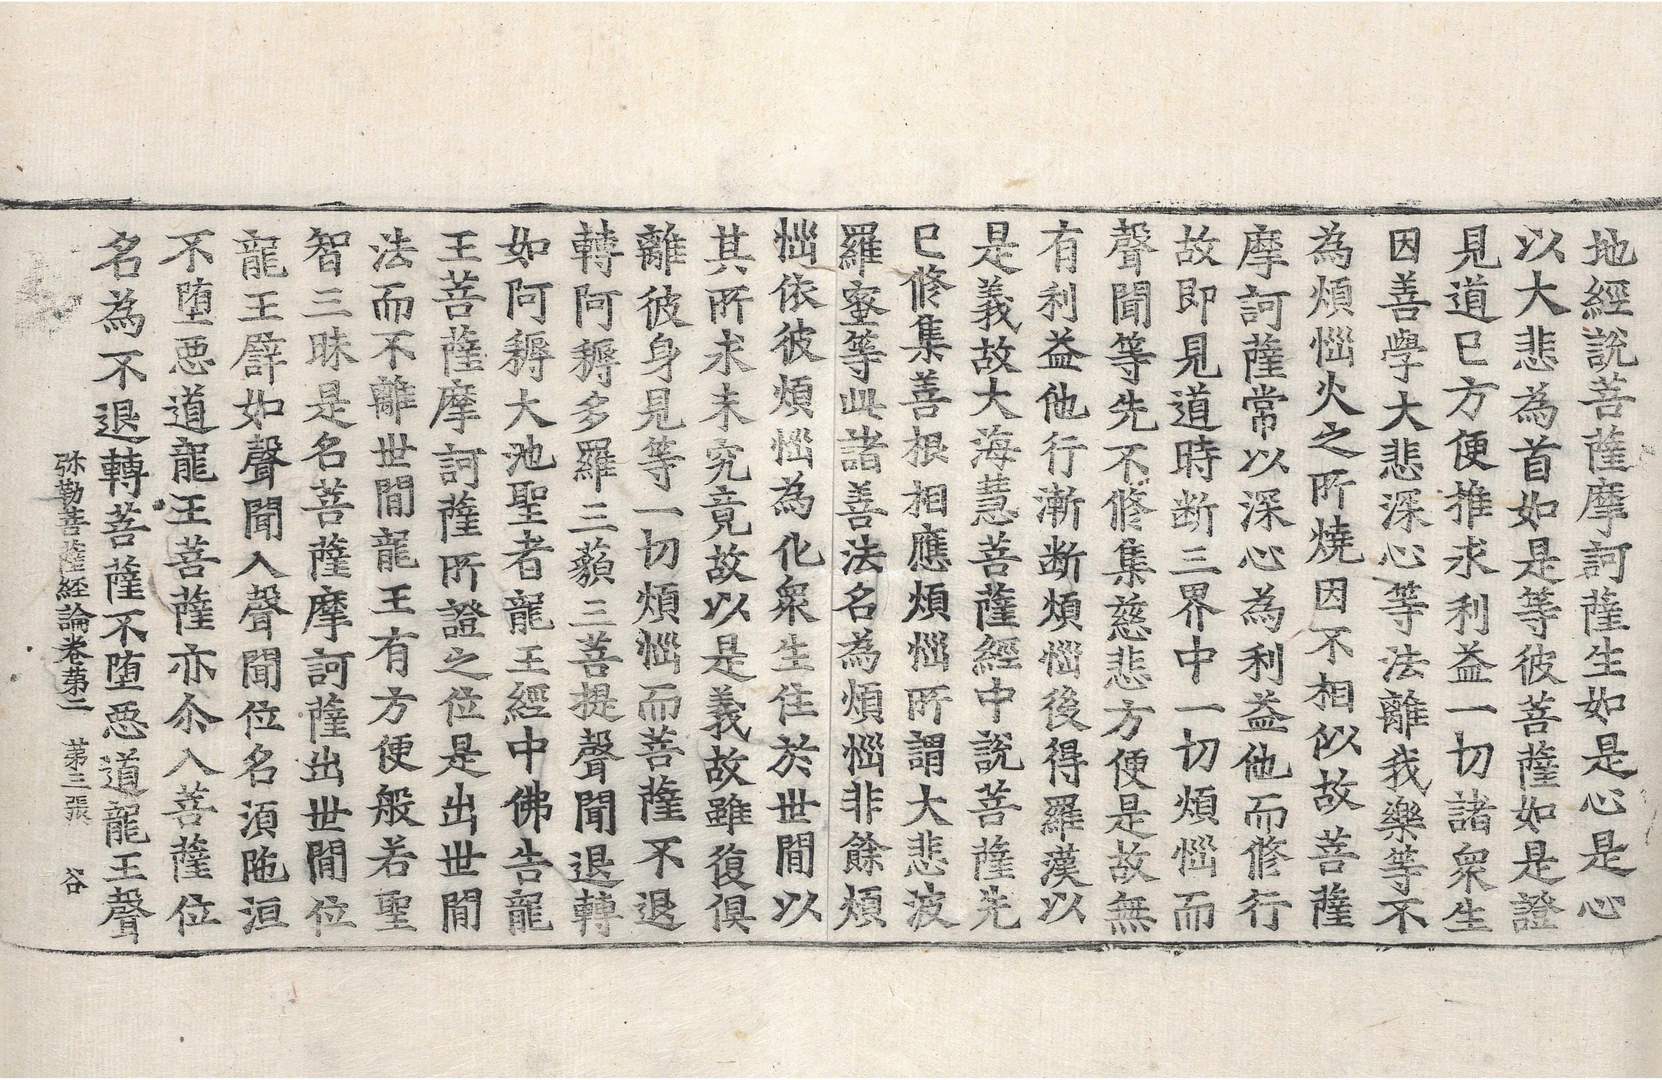 地經說菩薩摩訶薩生如是心是心
以大悲為首如是等彼菩薩如是證
見道已方便推求利益一切諸眾生
因善學大悲深心等法離我樂等不
為煩惱火之所燒因不相似故菩薩
摩訶薩常以深心為利益他而修行
故即見道時断三界中一切煩惱而
聲聞等先不修集慈悲方便是故無
有利益他行漸断煩惱後得羅漢以
是義故大海慧菩薩經中說菩薩先
已修集善根相應煩惱所謂大悲波
羅蜜等此諸善法名為煩惱非餘煩
惱依彼煩惱為化眾生住於世間以
其所求未究竟故以是義故雖復俱
離彼身見等一切煩惱而菩薩不退
轉阿耨多羅三藐三菩提聲聞退轉
如阿耨大池聖者龍王經中佛告龍
王菩薩摩訶薩所證之位是出世間
法而不離世間龍王有方便般若聖
智三昧是名菩薩摩訶薩出世間位
龍王譬如聲聞入聲聞位名湏陁洹
不堕惡道龍王菩薩亦尒入菩薩位
名為不退轉菩薩不堕惡道龍王聲
弥勒菩薩経論卷第二　第三張　谷